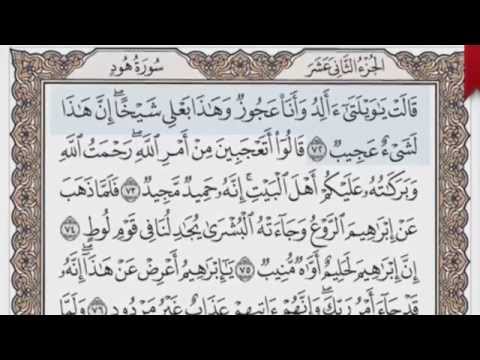 سُورَةُ هُودٍ الجُزْءُ الثَّانِي عَشَرَ
قَالَتْ يَٰوَيْلَتَىٰٓ ءَأَلِدُ وَأَنَا۠ عَجُوزٌ وَهَٰذَا بَعْلِى شَيْخًا ۖ إِنَّ هَٰذَا
لَشَىْءٌ عَجِيبٌ ٧٢ قَالُوٓا۟ أَتَعْجَبِينَ مِنْ أَمْرِ ٱللَّهِ ۖ رَحْمَتُ ٱللَّهِ
وَبَرَكَٰتُهُۥ عَلَيْكُمْ أَهْلَ ٱلْبَيْتِ ۚ إِنَّهُۥ حَمِيدٌ مَّجِيدٌ ٧٣ فَلَمَّا ذَهَبَ
عَنْ إِبْرَٰهِيمَ ٱلرَّوْعُ وَجَآءَتْهُ ٱلْبُشْرَىٰ يُجَٰدِلُنَا فِى قَوْمِ لُوطٍ ٧٤
إِنَّ إِبْرَٰهِيمَ لَحَلِيمٌ أَوَّٰهٌ مُّنِيبٌ ٧٥ يَٰٓإِبْرَٰهِيمُ أَعْرِضْ عَنْ هَٰذَآ ۖ إِنَّهُۥ
قَدْ جَآءَ أَمْرُ رَبِّكَ ۖ وَإِنَّهُمْ ءَاتِيهِمْ عَذَابٌ غَيْرُ مَرْدُودٍ ٧٦ وَلَمَّا